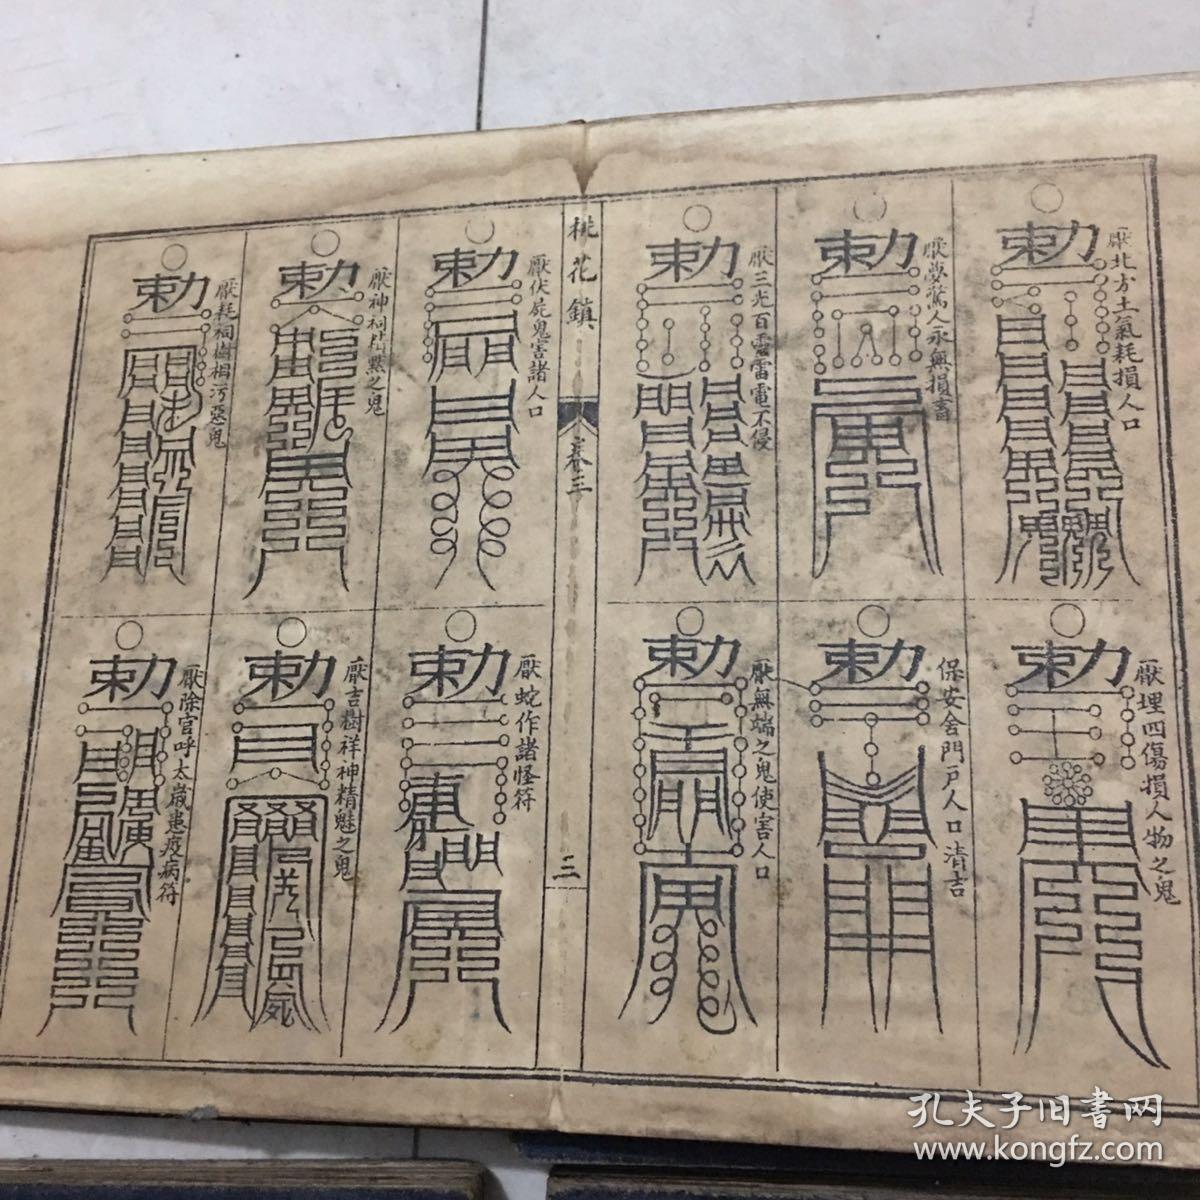 厭北方土氣耗損人口
勅
厭夢驚人永無損畜
勅
厭三光百靈雷電不侵
勅
厭埋四傷損人物之鬼
勅
保安舍門戸人口清吉
勅
厭無端之鬼使害人口
勅
桃花鎮
卷三
三
厭伏屍鬼害諸人口
勅
勅
勅
厭蛇作諸怪符
勅
厭吉樹祥神精魅之鬼
勅
厭除宫呼太歲患疫病符
勅
孔夫子旧书网
www.kongfz.com